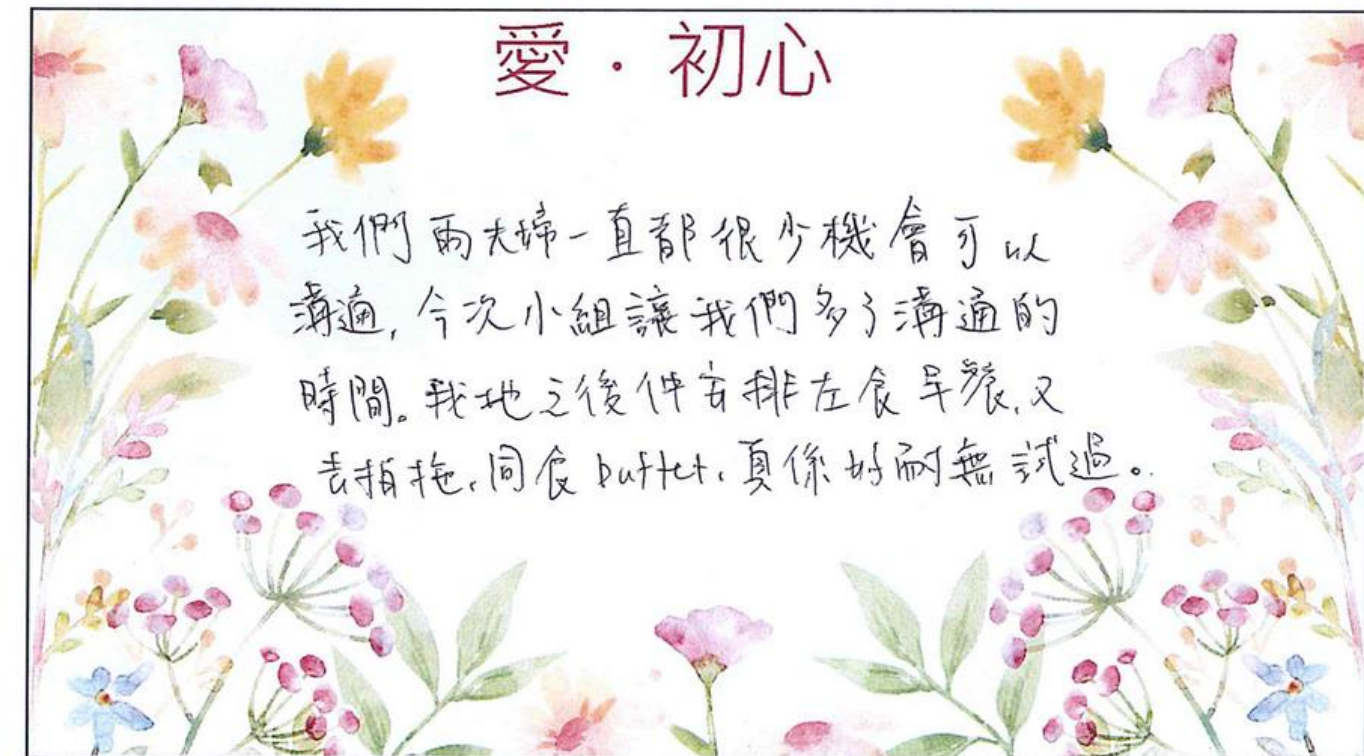 愛·初心
我們兩夫婦一直都很少機會可以
溝通,今次小組讓我們多了溝通的
時間。我地之後仲安排左食早餐,又
去拍拖,同食buffet,真係好耐無試過。